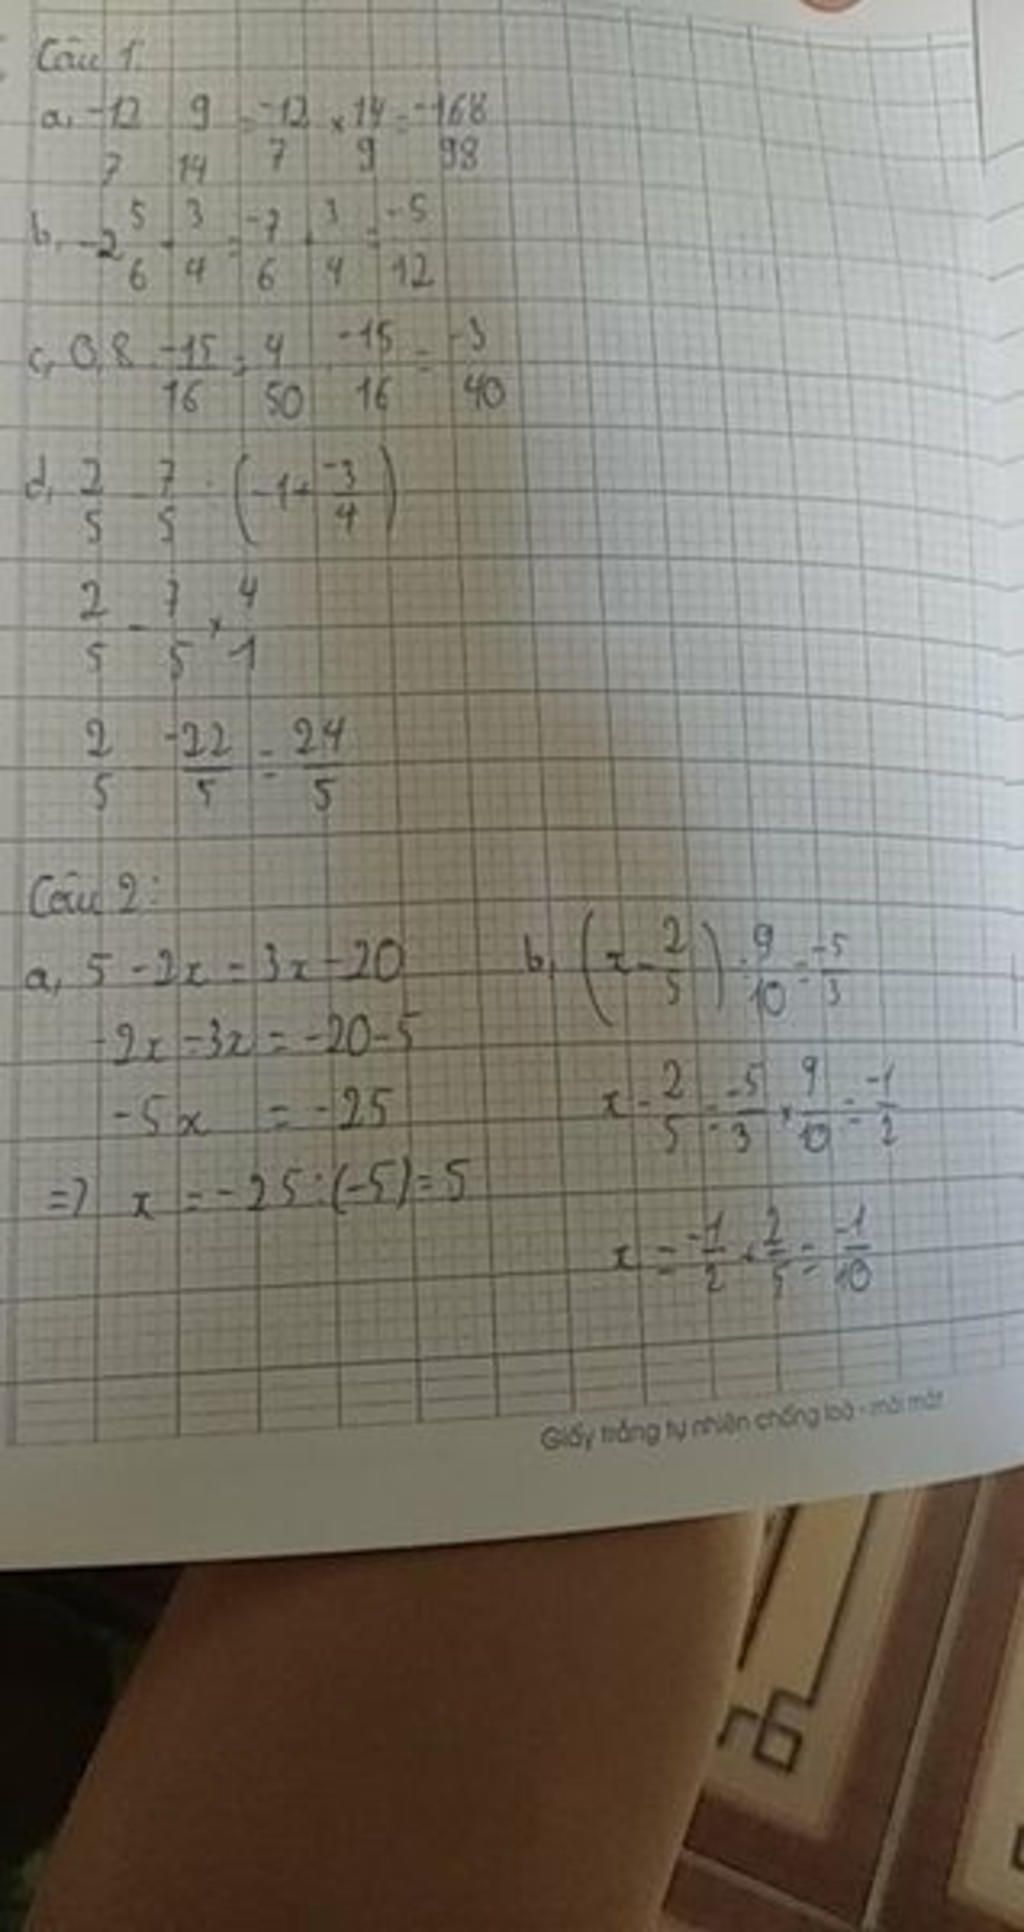 Câu 1:
a, -12/7 : 9/14 = -12/7 × 14/9 = -168/98
b, -2 5/6 + 3/4 = -7/6 + 3/4 = -5/12
c, 0,8 . -15/16 = 4/50 . -15/16 = -3/40
d, 2/5 - 7/5 : (-1 + -3/4)
2/5 - 7/5 × 4/1
2/5 - -22/5 = 24/5
Câu 2:
a, 5 - 2x = 3x - 20
-2x - 3x = -20 - 5
-5x = -25
=> x = -25 : (-5) = 5
b, (x - 2/5) : 9/10 = -5/3
x - 2/5 = -5/3 × 9/10 = -1/2
x = -1/2 + 2/5 = -1/10
Giấy trắng tự nhiên chống loá - mỏi mắt